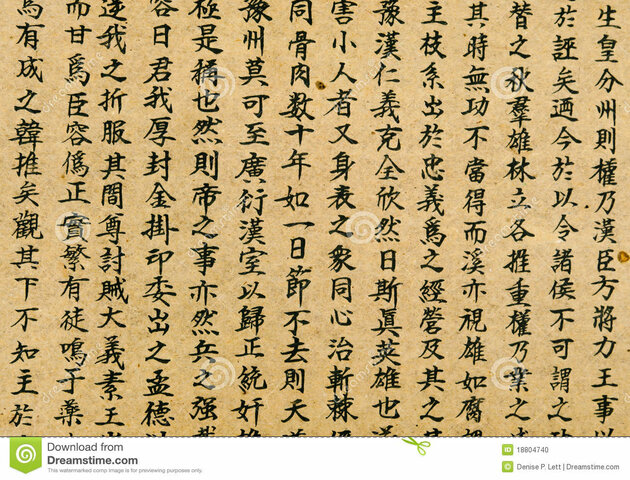 生皇分州則權乃漢臣方將力王事以
於誣矣迺今於以令諸侯不可謂之
替之秋羣雄林立各推重權乃業之
其時無功不當得而溪亦視雄如腐
主枝系出於忠義爲之經營及其之
豫漢仁義克全欣然日斯眞英雄也
害小人者又身表之衆同心治斬棘
同骨肉数十年如一日節不去則天
豫州莫可至廣衍漢室以歸正統奸
極是稱也然則帝之事亦然兵之强
容日君我厚封金掛印委出之孟德
逆我之折服其間尊討賊大義素王
而甘爲臣容僞正實繁有徒鳴于藥
爲有成之韓推矣觀其下不知主於
Download from
Dreamstime.com
This watermarked comp image is for previewing purposes only.
ID 18804740
© Denise P. Lett | Dreamstime.com